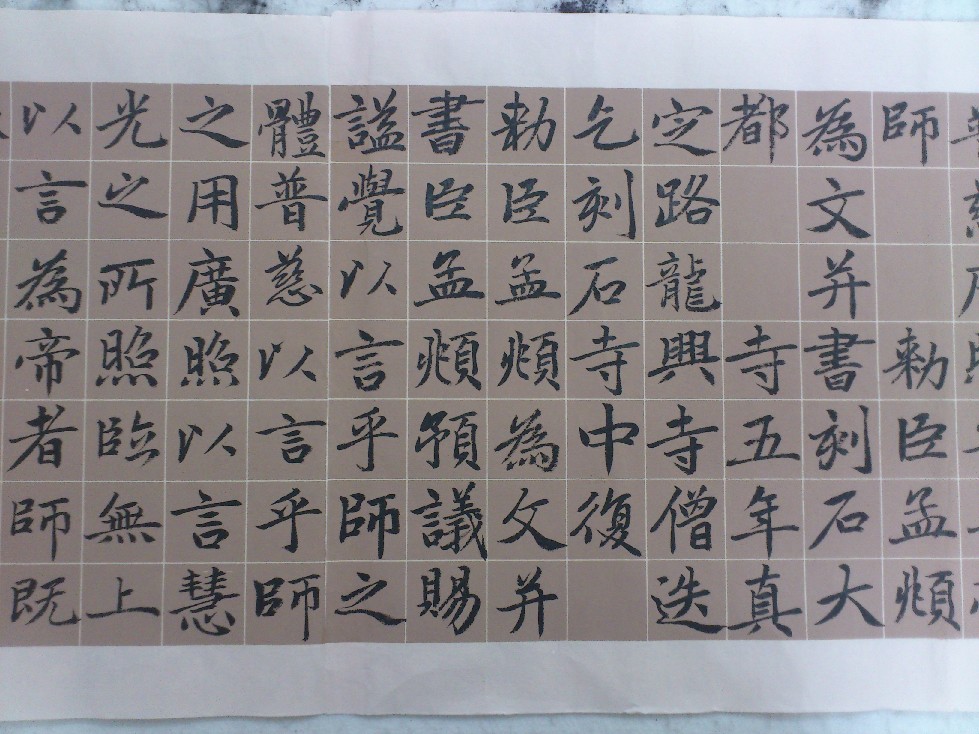 師勅臣孟頫
為文并書刻石大
都寺五年真
定路龍興寺僧迭
乞刻石寺中復
勅臣孟頫為文并
書臣孟頫預議賜
謚覺以言乎師之
體普慈以言乎師
之用廣照以言慧
光之所照臨無上
以言為帝者師既